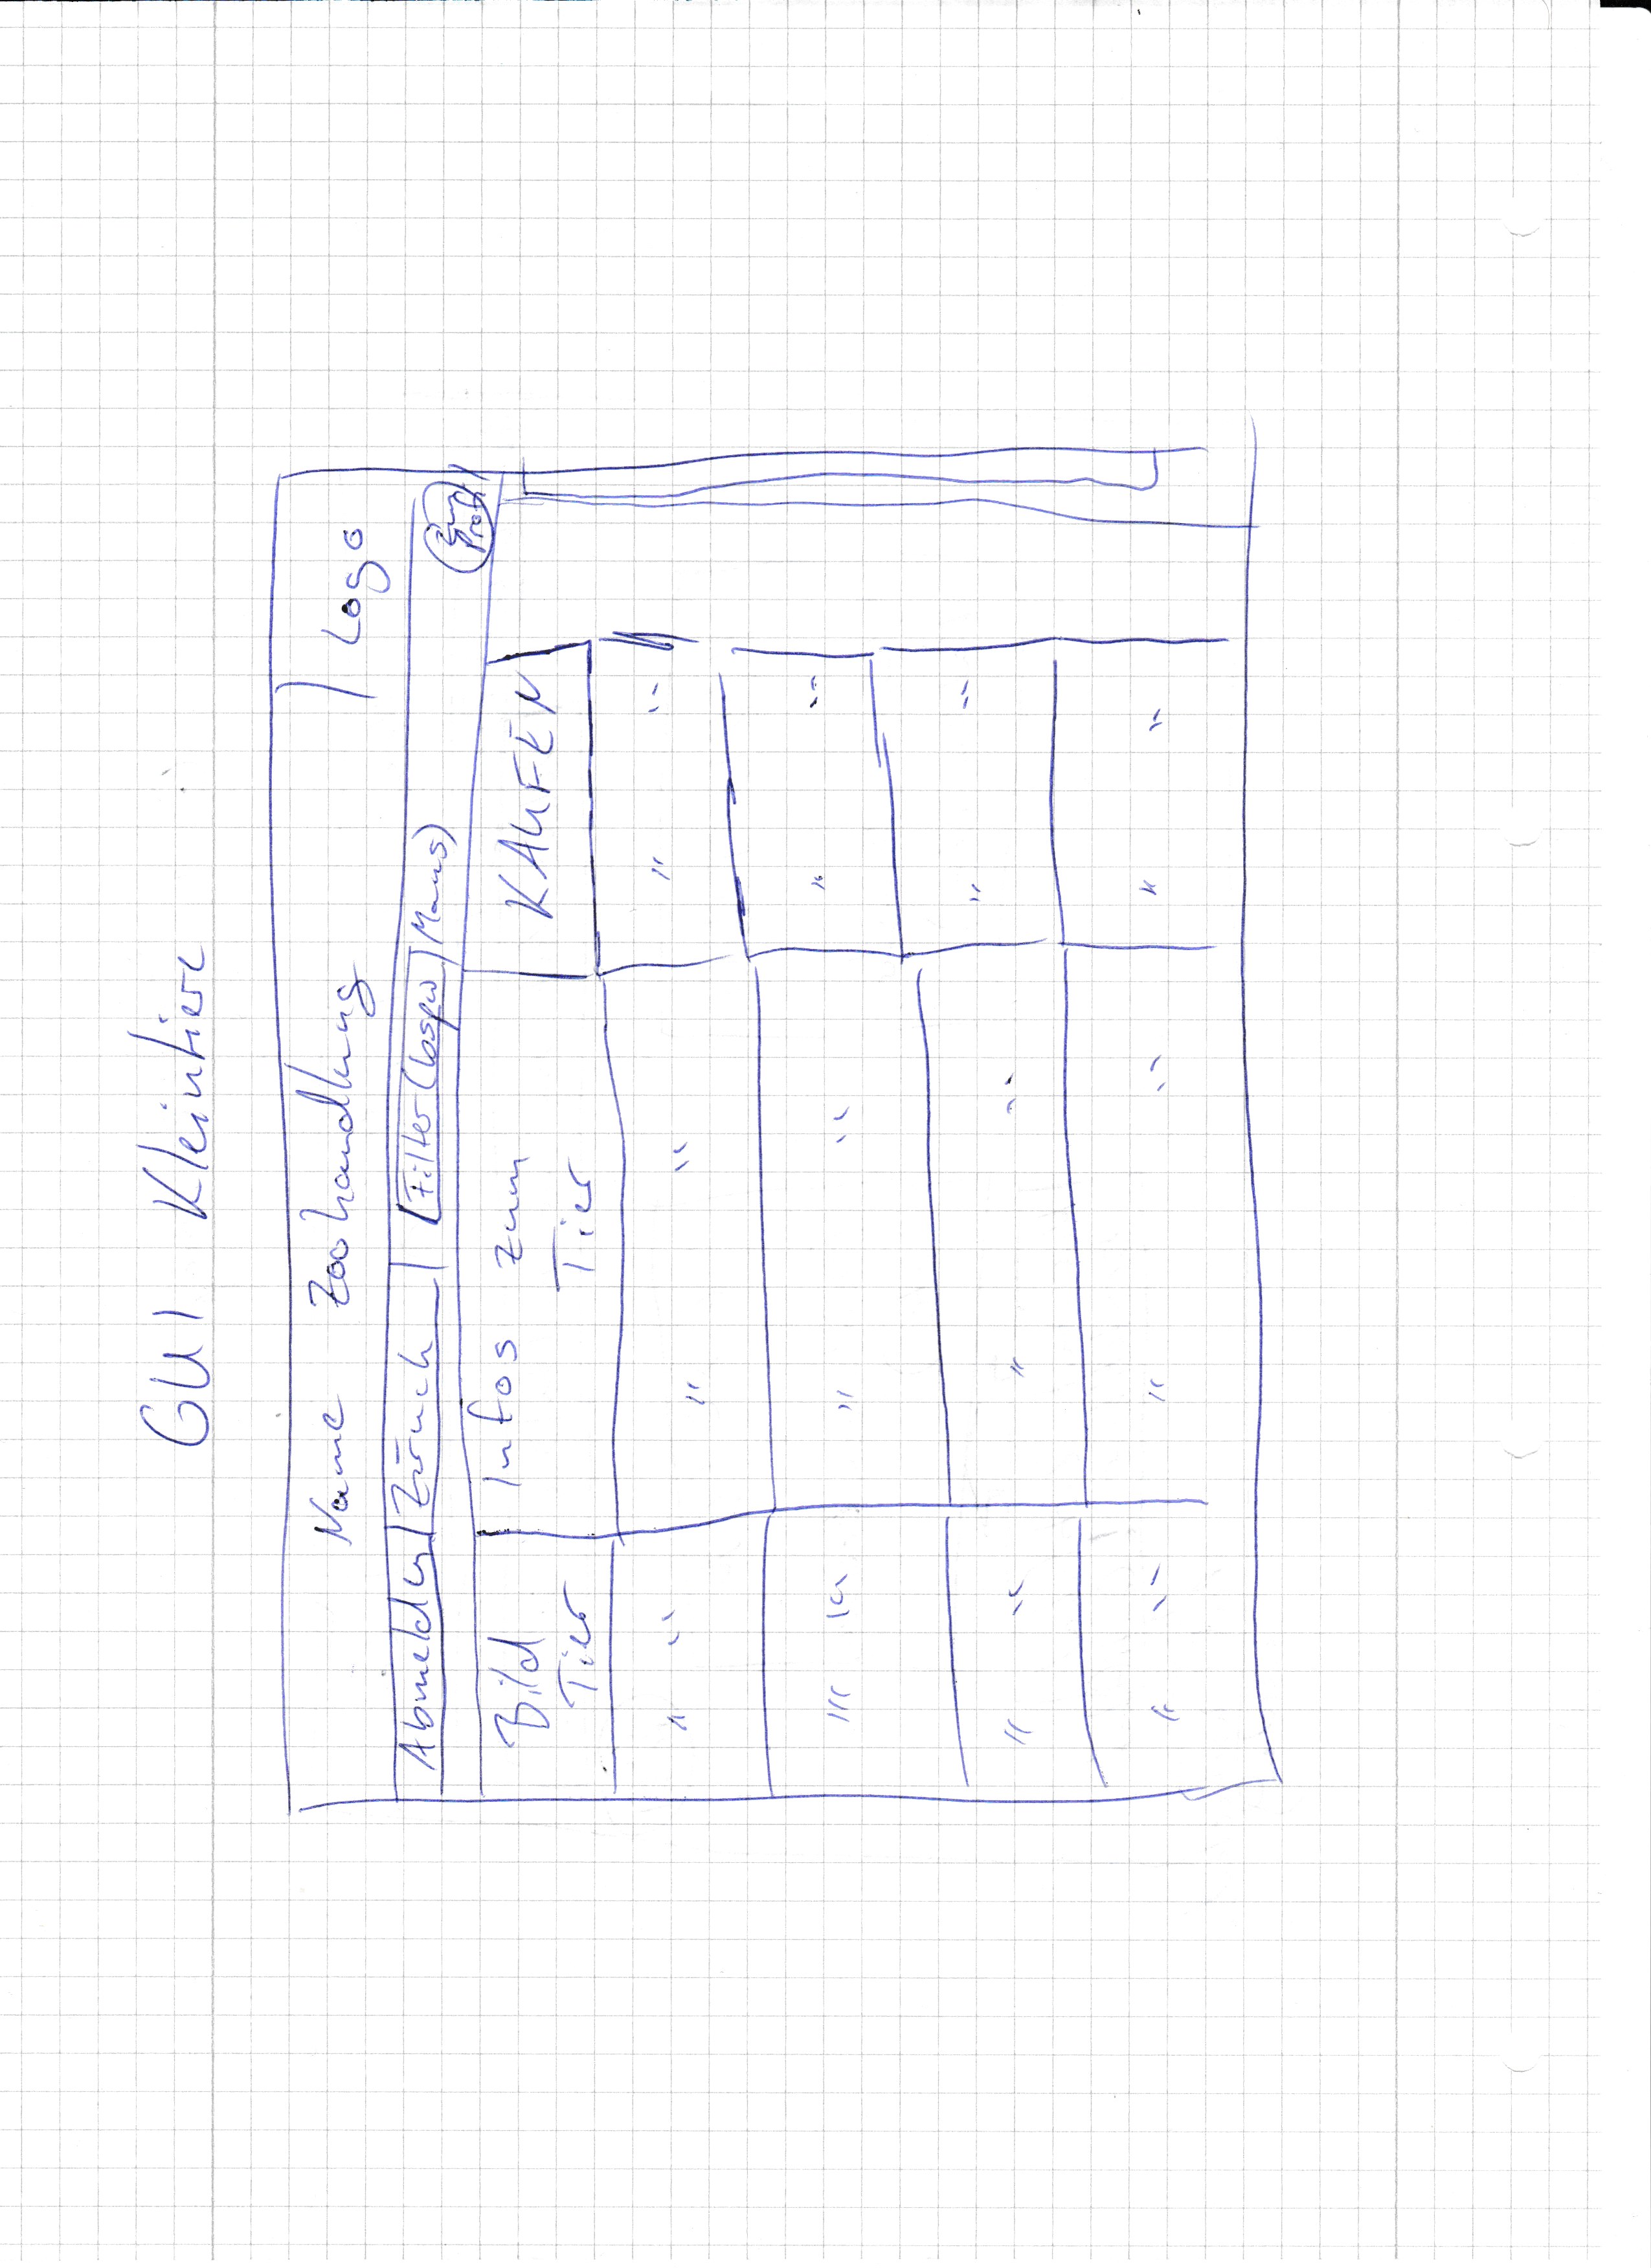 GUI Kleintiere
Name Zoohandlung Logo
Abmelden Zürück Filter (bspw Maus)
Bild Tier Infos zum Tier KAUFEN
" " " " " "
" " " " " "
" " " " " "
" " " " " "